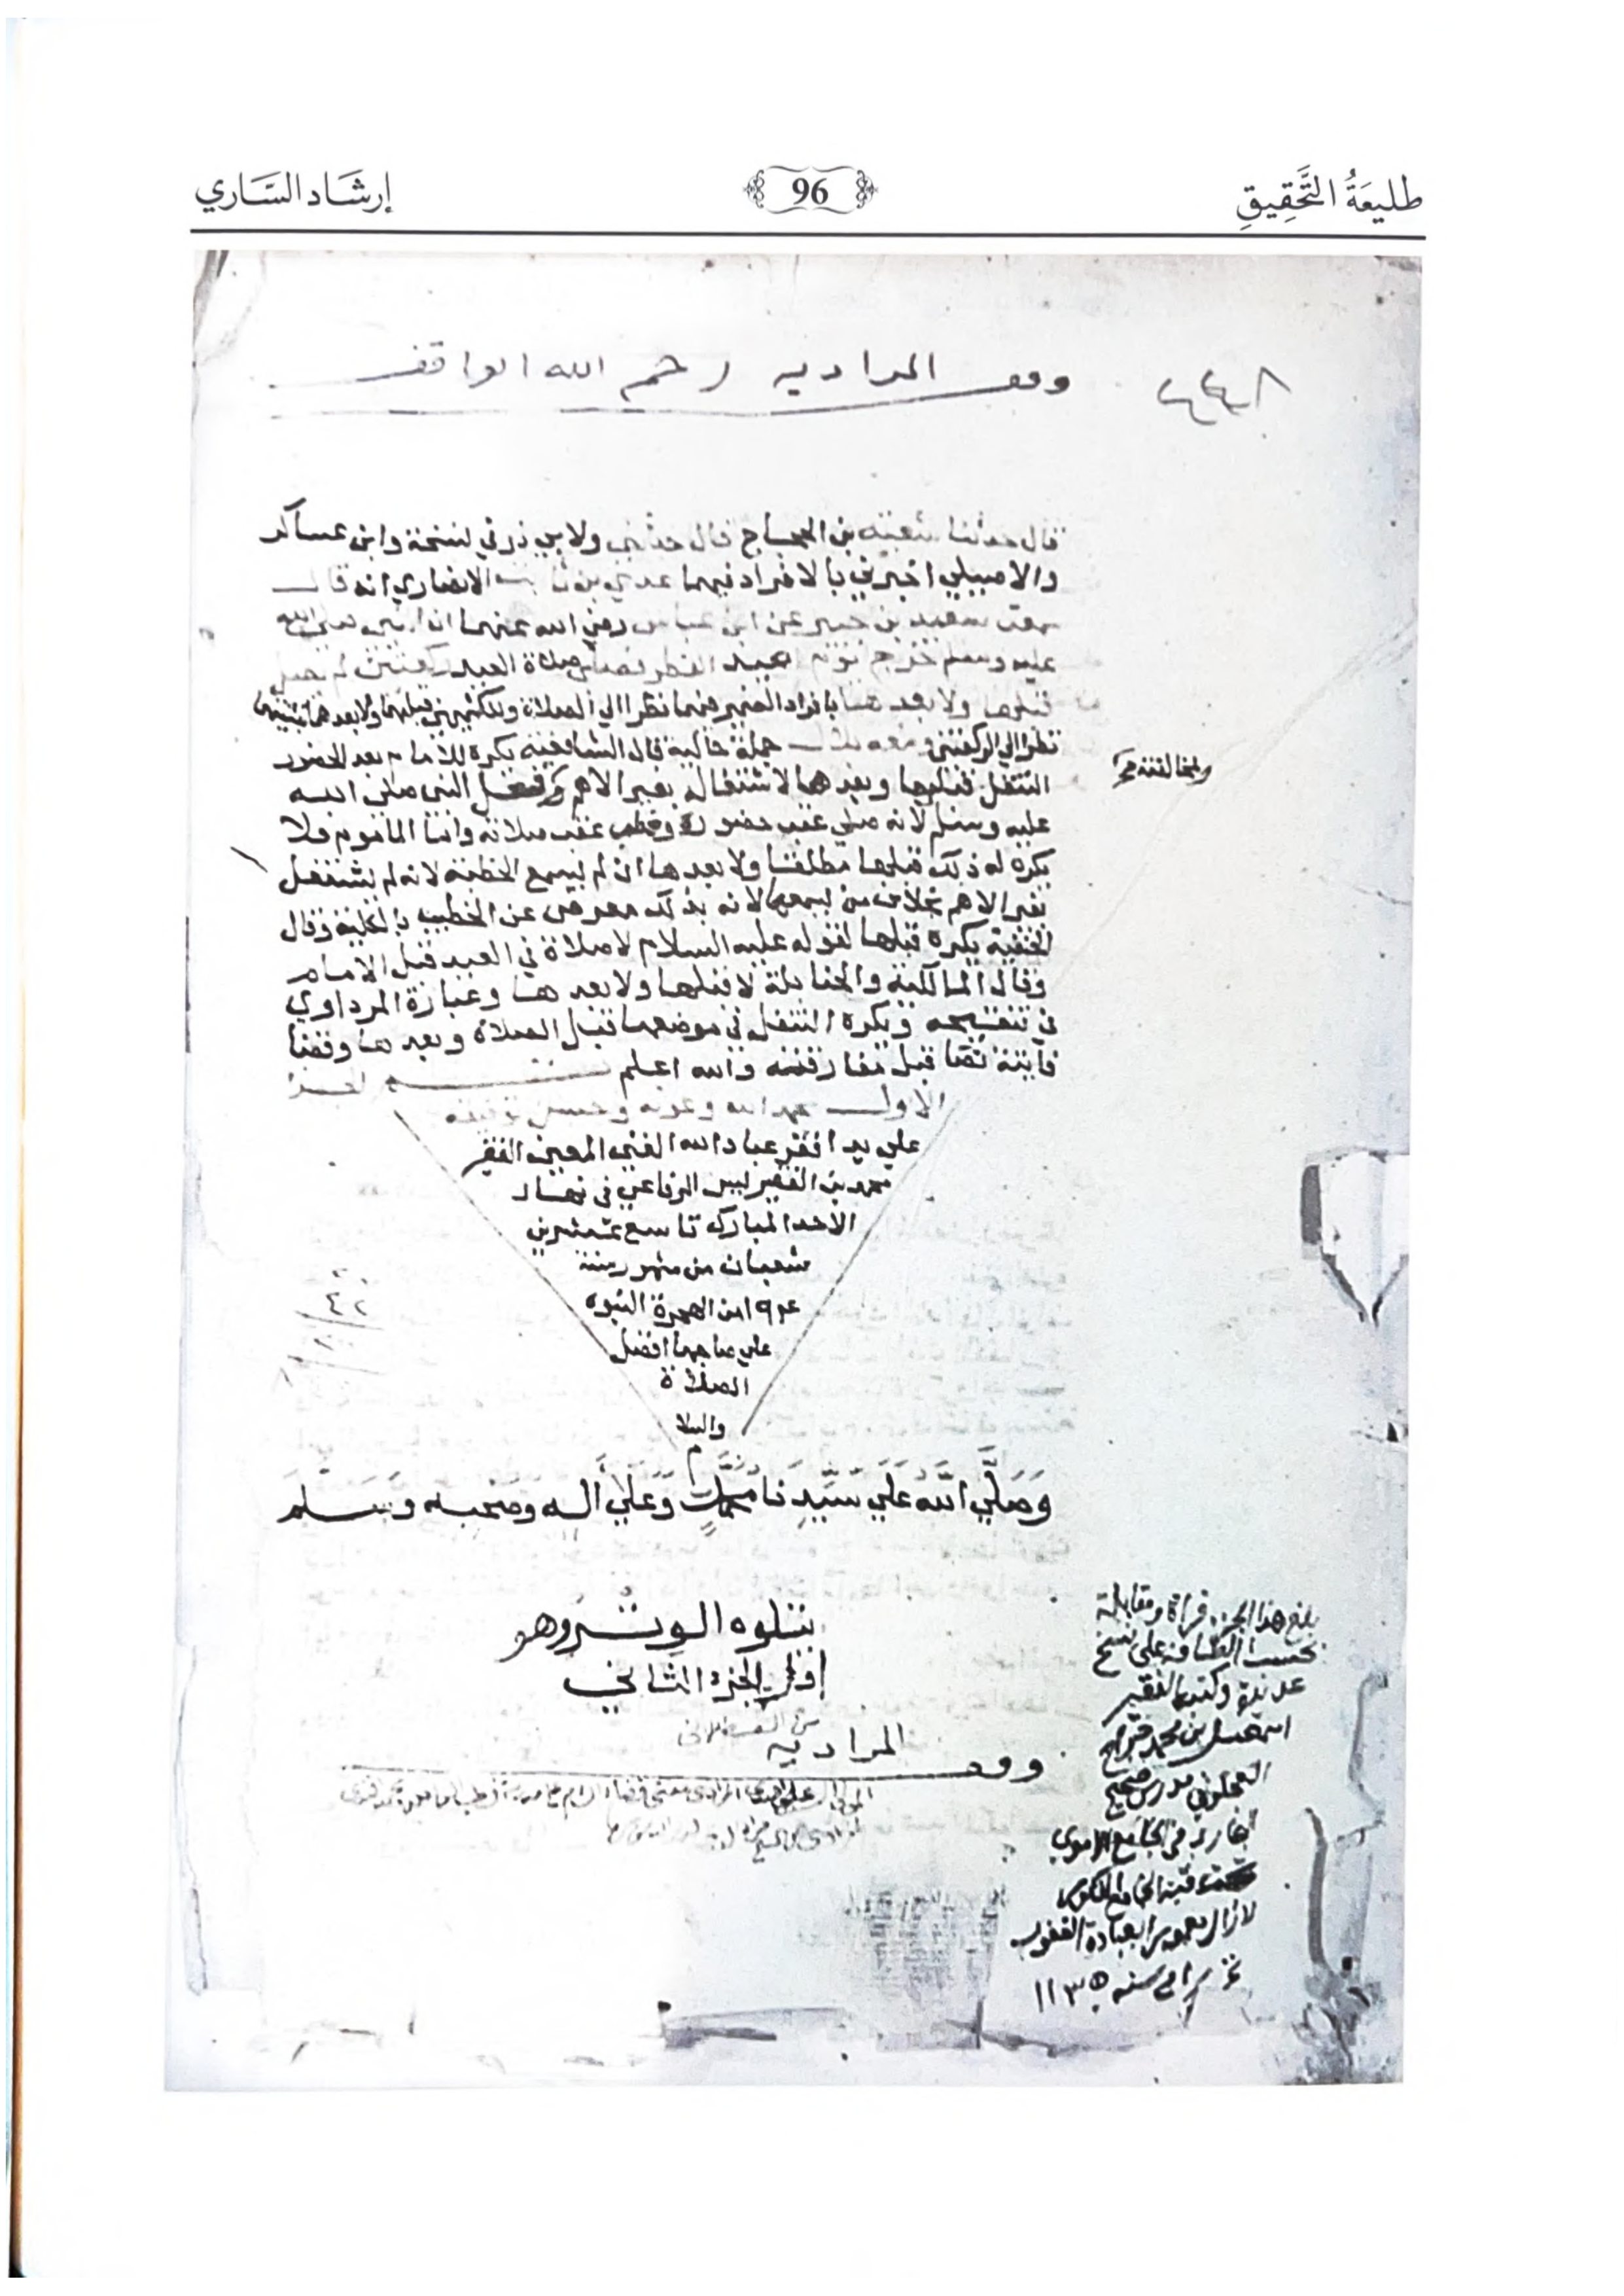 طليعَةُ التَّحقِيقِ
96
إرشَاد السَّاري
وقف المرادية رحم الله الواقف
قال حدثنا شعبة بن الحجاج قال حدثني ولابي ذر في نسخة وابن عساكر
والاصيلي اخبرني بالافراد فيهما عدي بن ثابت الانصاري انه قال
سمعت سعيد بن جبير عن ابن عباس رضي الله عنهما ان النبي صلى الله
عليه وسلم خرج يوم عيد الفطر فصلى صلاة العيد ركعتين لم يصل
قبلها ولا بعدها بافراد الضمير فيهما نظرا الي الصلاة وللكشميهني قبلهما ولا بعدهما بتثنيتهما
نظرا الي الركعتين ومعه بلال جملة حالية قال الشافعية يكره للامام بعد الحضور
التنفل قبلها وبعدها لاشتغاله بغير الاهم فعل النبي صلى الله
عليه وسلم لانه صلي عقب حضوره وخطب عقب صلاته واما الماموم فلا
يكره له ذلك قبلها مطلقا ولا بعدها ان لم يسمع الخطبة لانه لم يشتغل
بغير الاهم بخلاف من يسمعها لانه بذلك معرض عن الخطيب بالكلية وقال
الحنفية يكره قبلها لقوله عليه السلام لا صلاة في العيد قبل الامام
وقال المالكية والحنابلة لا قبلها ولا بعدها وعبارة المرداوي
في تنقيحه ويكره التنفل في موضعها قبل الصلاة وبعدها وقضا
فايتة نصا قبل مفارقته والله اعلم تم الجزء
الاول بحمد الله وعونه وحسن توفيقه
علي يد افقر عباد الله الغني المعين الفقير
محمد بن الفقير الرفاعي في نهار
الاحد المبارك تاسع عشرين
شعبان من شهور سنة
من الهجرة النبوه
علي صاحبها افضل
الصلاة
والسلا
م
وَصَلَّي اللَّه عَلَي سَيِّدِنَا محمد وَعَلَي أله وصحبه وسلم
ولمخالفته
يتلوه الوتر وهو
اول الجزء الثاني
من القسطلاني
وقف المرادية
بلغ هذا الجزء قراة ومقابلة
بحسب الطاقة علي نسخ
عديدة وكتبه الفقير
اسمعيل بن محمد جراح
العجلوني مدرس صحيح
البخاري في الجامع الاموي
تحت قبة الجامع المذكور
لا زال معمورا بعبادة الغفور
سنه ١١٣٥